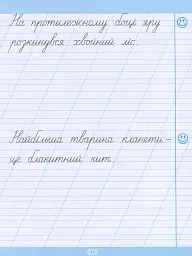 На протилежному боці яру
розкинувся хвойний ліс.
Найбільша тварина планети –
це блакитний кит.